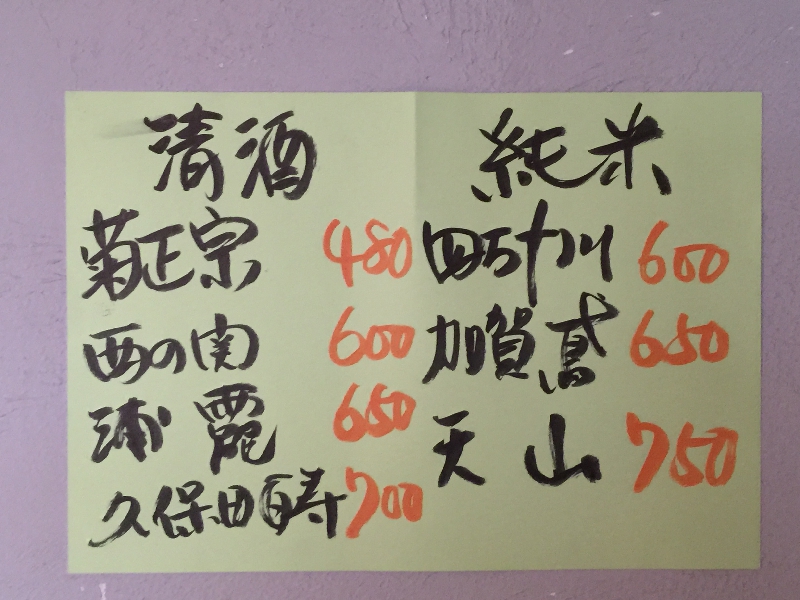 清酒
菊正宗 480
西の関 600
浦霞 650
久保田百寿 700
純米
四万十川 600
加賀鳶 650
天山 750